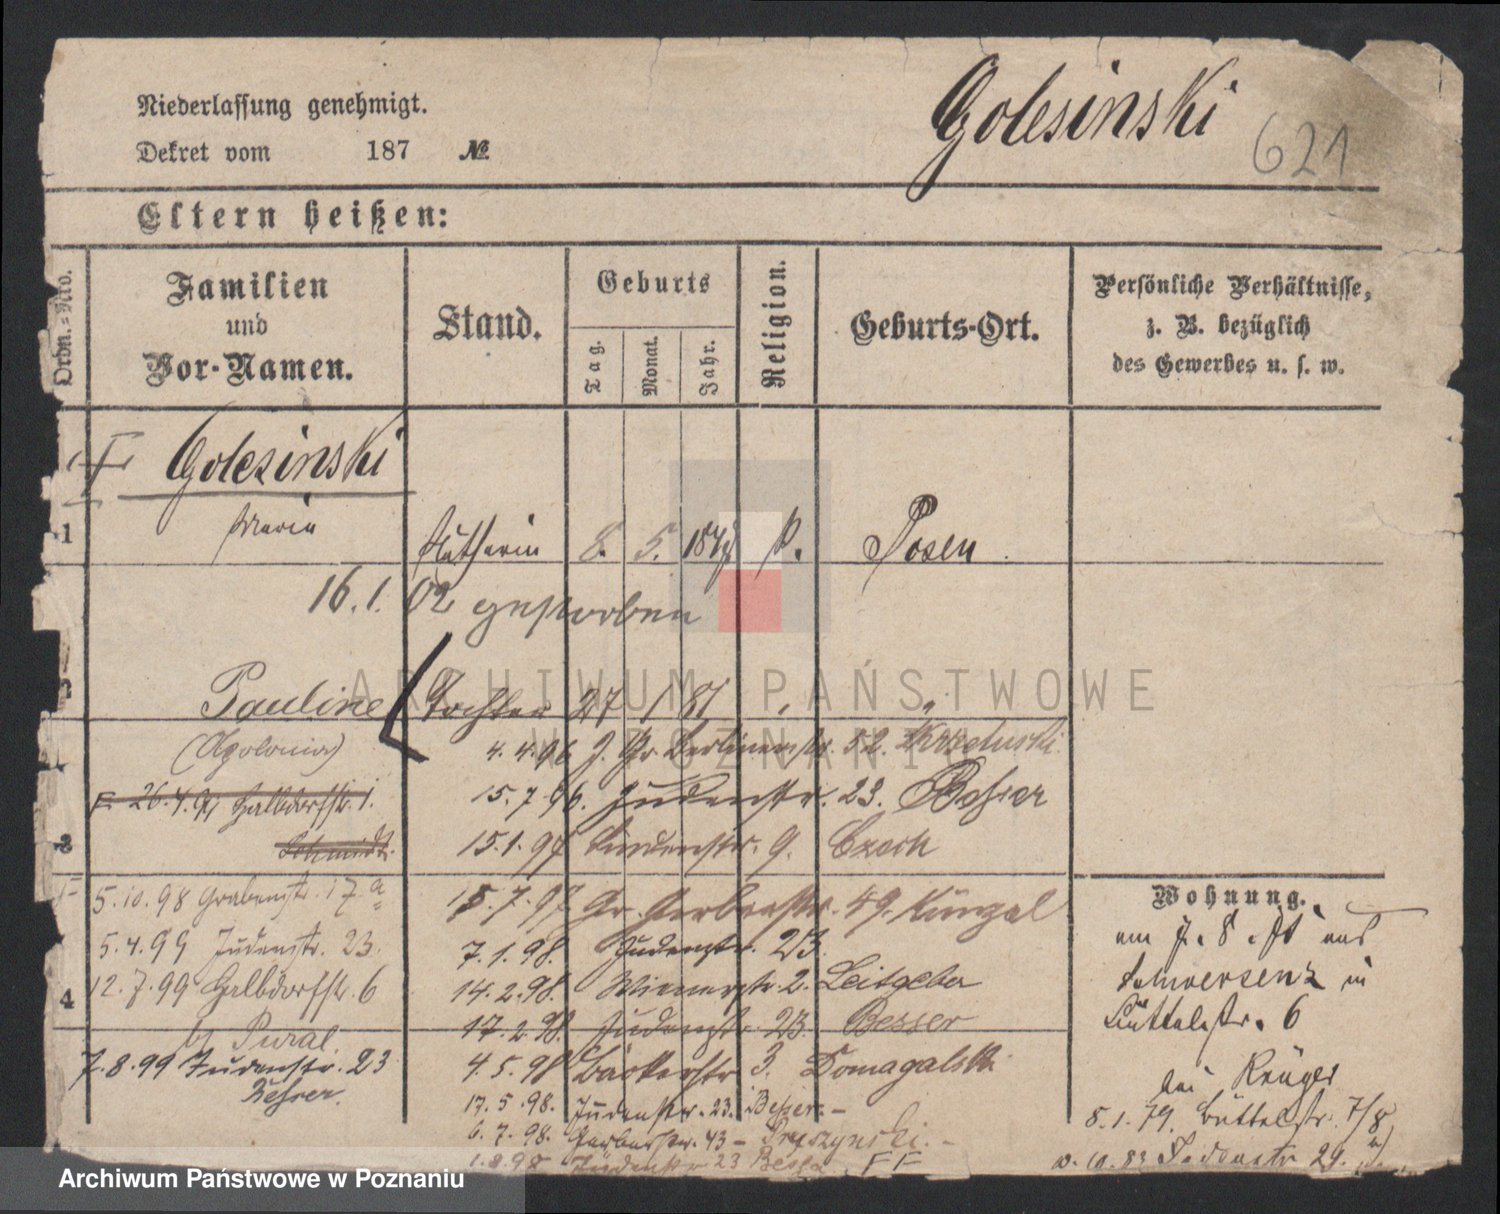 Niederlassung genehmigt.
Golesinski
621
Dekret vom 187 №
Eltern heißen:
Ordn.-Nro.
Familien
und
Vor-Namen.
Stand.
Geburts
Tag.
Monat.
Jahr.
Religion.
Geburts-Ort.
Persönliche Verhältnisse,
z. B. bezüglich
des Gewerbes u. s. w.
Golesinski
1 Maria 8. 5. Posen.
16.1.02 gestorben
Pauline Tochter 27 1 81 " "
(Apolonia)
4.4.96 Gr Berlinerstr. 52.
Halbdorfstr. 1.
Schmidt.
15.7.96. Judenstr. 23. Besser
3
15.1.97 9. Czech
5.10.98 Grabenstr. 17 a
15.7.97 Gr. Gerberstr. 49. Künzel
5.4.99 Judenstr. 23.
7.1.98. Judenstr. 23.
4
12.7.99 Halbdorfstr. 6
14.2.98. Wienerstr. 2. Leitgeber
17.2.98. Judenstr. 23. Besser
7.8.99 Judenstr. 23
4.5.98 Bäckerstr 3. Domagalski
17.5.98. Judenstr. 23. Besser. –
6.7.98. Gerberstr. 43 –
1.8.98 Judenstr 23 Besser FF
Wohnung.
am 7. 8. aus
Schwersenz in
Büttelstr. 6
bei Krüger
8.1.79. Büttelstr. 7/8
10.83
ARCHIWUM PAŃSTWOWE
W POZNANIU
Archiwum Państwowe w Poznaniu